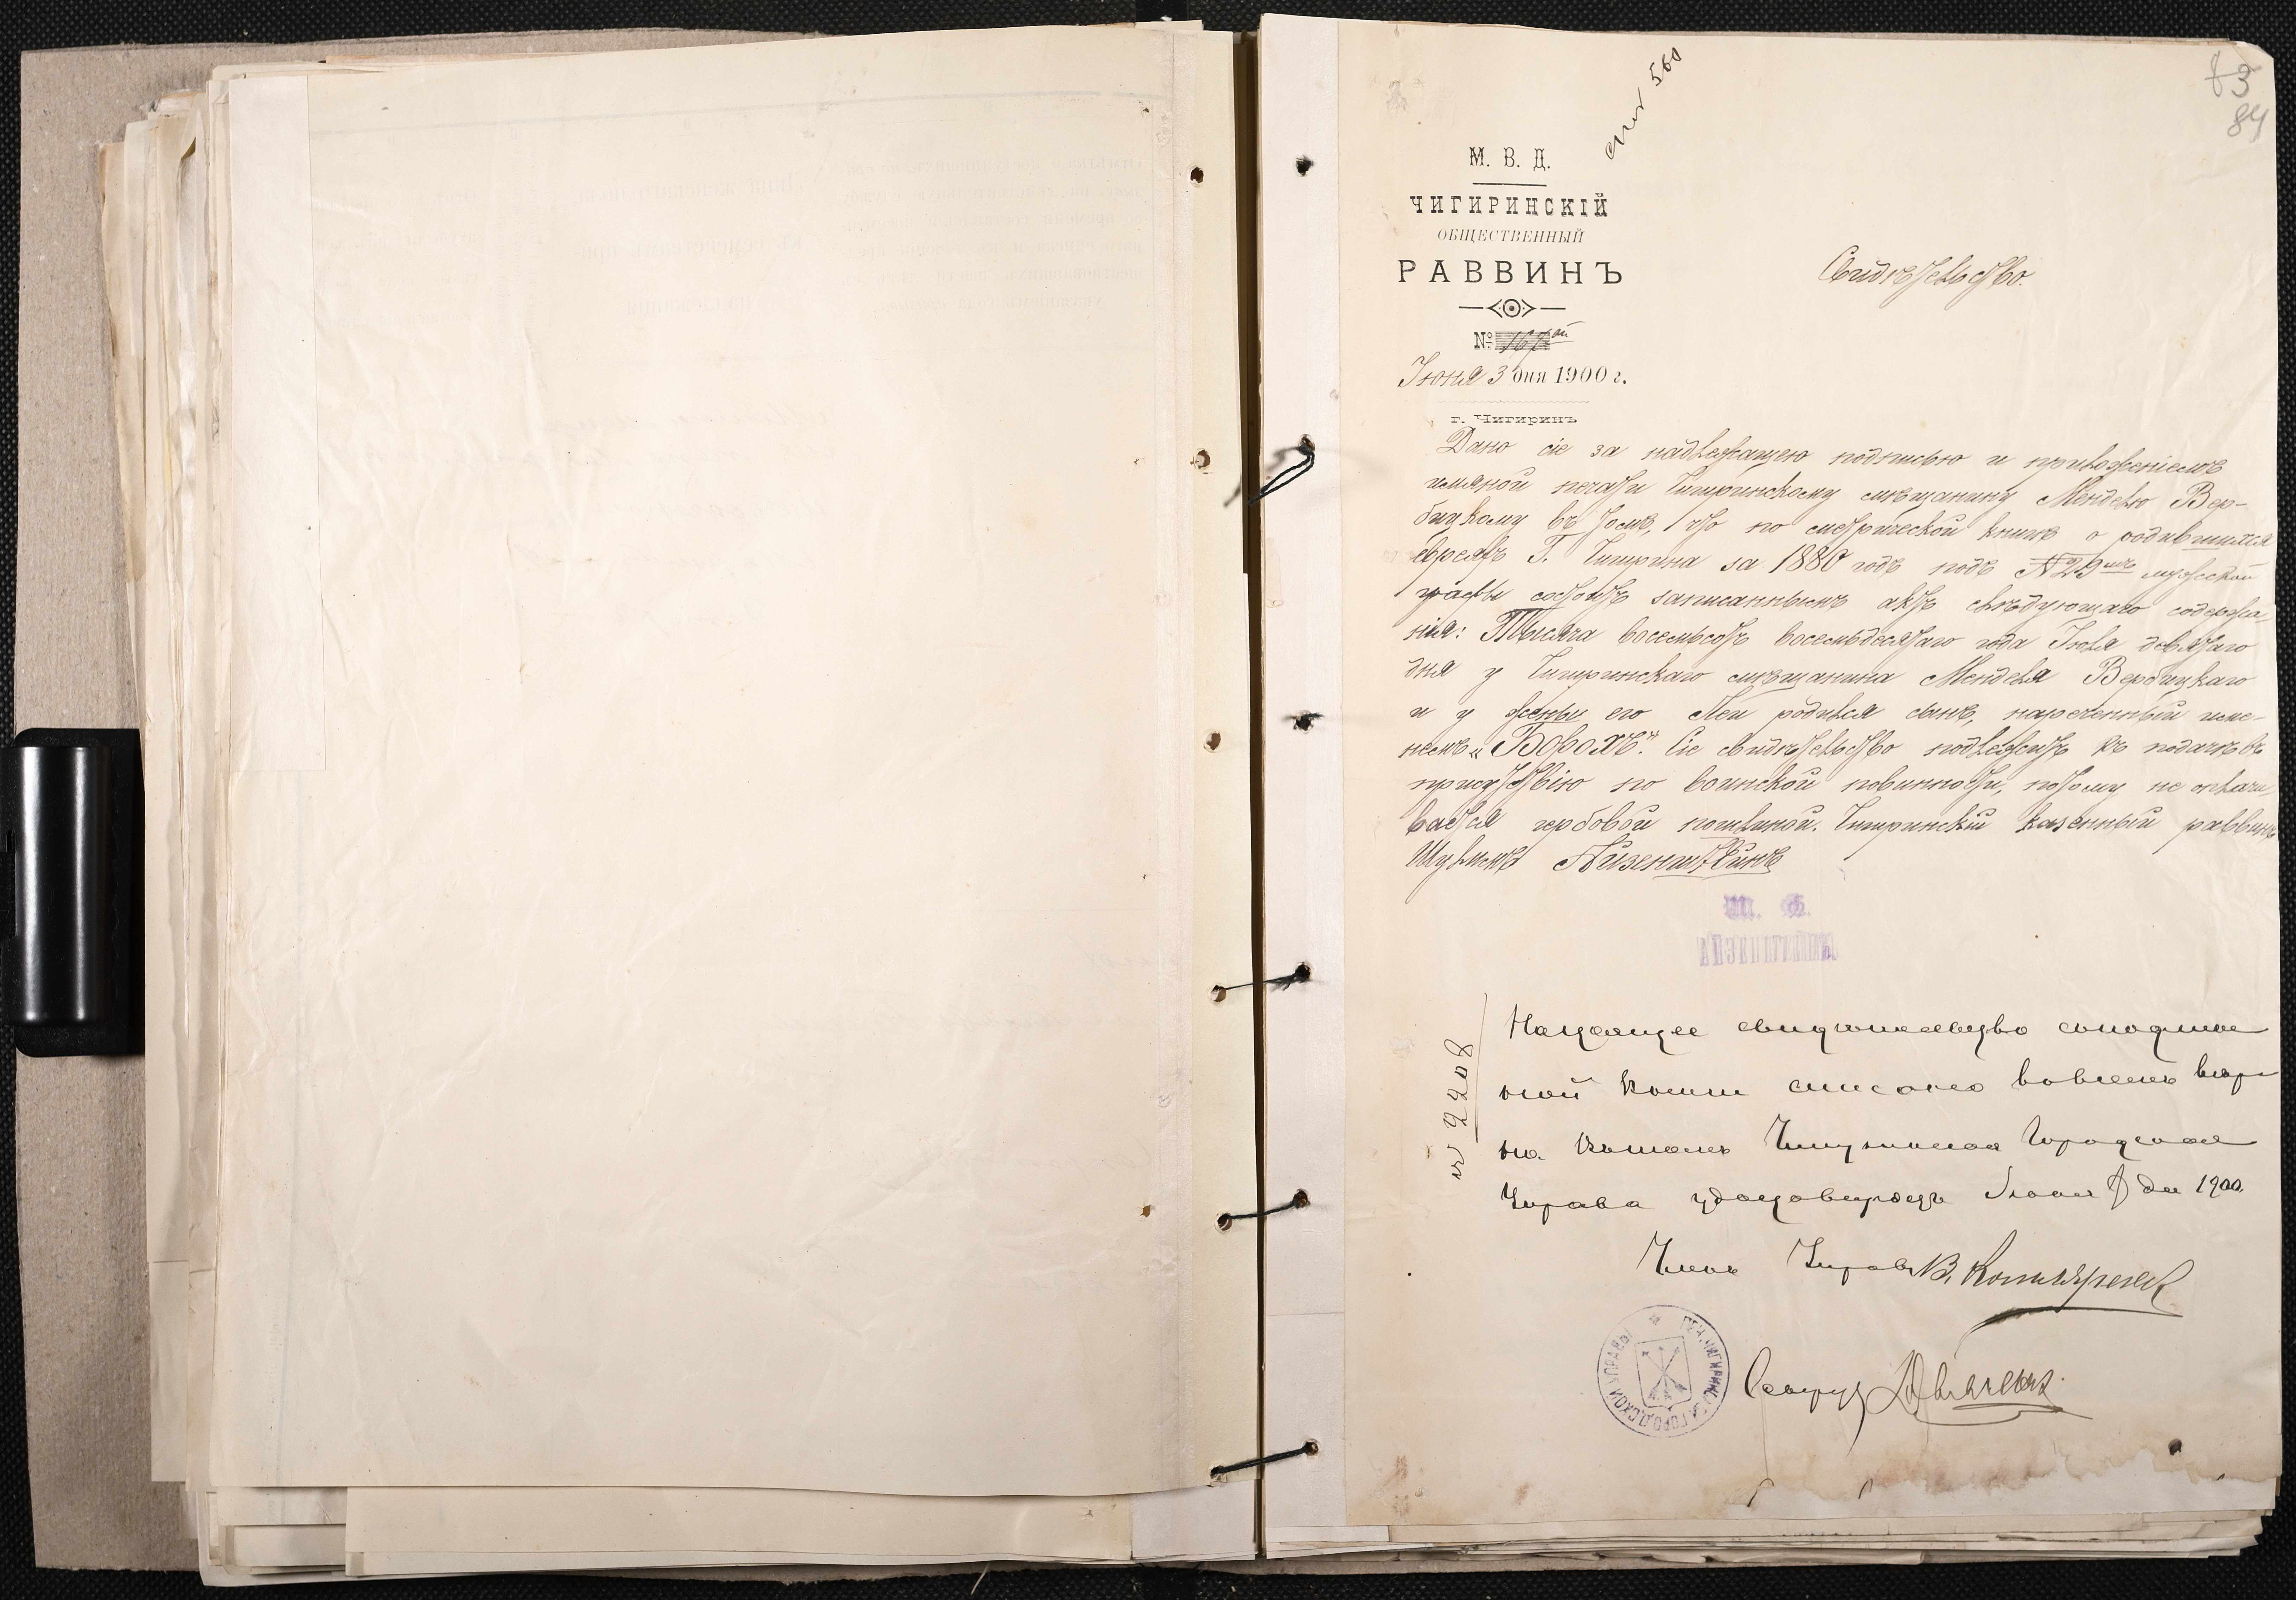 83
84
560
М. В. Д.
ЧИГИРИНСКІЙ
ОБЩЕСТВЕННЫЙ
РАВВИНЪ
№ 167ой
Іюня 3 дня 1900 г.
г. Чигиринъ
Свидѣтельство.
Дано сіе за надлежащею подписью и приложеніемъ
имяной печати Чигиринскому мѣщанину Менделю Вер-
бицкому въ томъ, что по метрической книгѣ о родившихся
евреяхъ Г. Чигирина за 1880 годъ подъ №29мъ мужской
графы состоитъ записаннымъ актъ слѣдующаго содержа-
нія: Тысяча восемьсотъ восемьдесятаго года Іюля девятаго
дня у Чигиринскаго мѣщанина Менделя Вербицкаго
и у жены его Леи родился сынъ, нареченный име-
немъ „Боволхъ". Сіе свидѣтельство подлежитъ къ подачѣ въ
присутствію по воинской повинности, потому не оплачи-
вается гербовой пошлиной. Чигиринскій казенный раввинъ
Шулимъ Айзенштейнъ
Ш. Б.
АЙЗЕНШТЕЙНЪ
№ 2208
Настоящее свидѣтельство сподлин
ной копіи списано вовсемъ вѣр
но въ чемъ Чигиринская Городская
Управа удостовѣряетъ Іюня дня 1900
Членъ Управы В.
Секрет
ПЕЧ. ЧИГИРИНСКОЙ ГОРОДСКОЙ УПРАВЫ